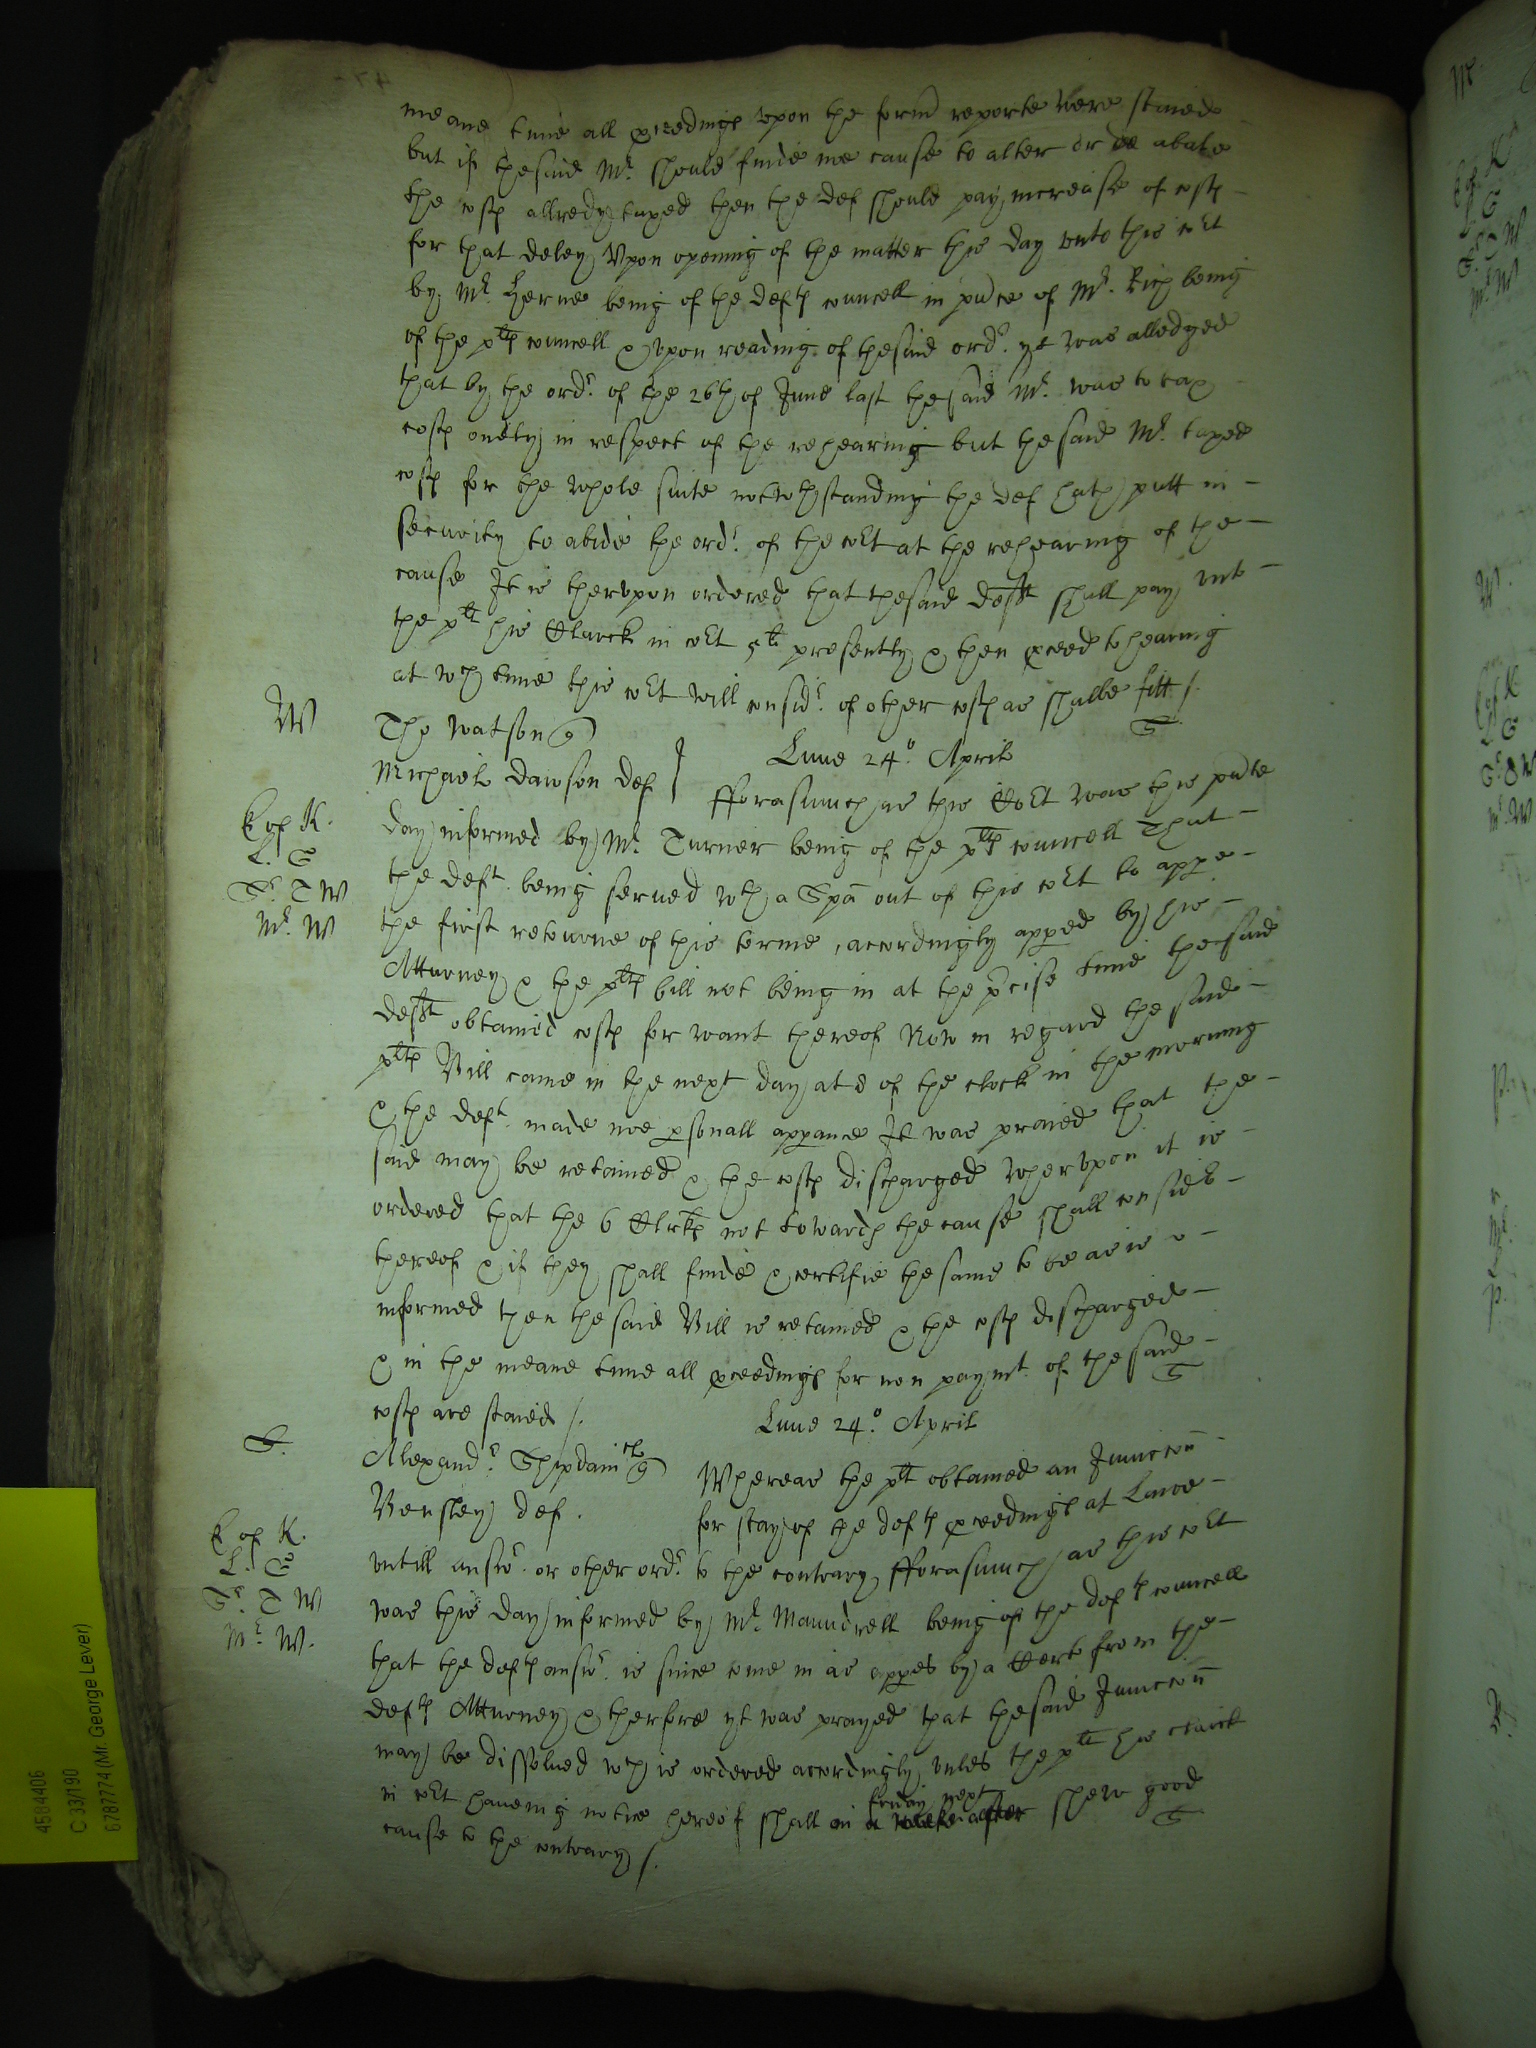 meane time all ꝓceedings vpon the form̃ reporte were staied
but if thesaid Mr. should finde noe cause to alter or abate
the costs allredy taxed then the def should pay increase of costs
for that deley Vpon opening of the matter this day vnto this coɼt
by Mr. Herne being of the defts councell in pñce of Mr. Rich being
of the plts councell & vpon reading of thesaid ordr. yt was alledged
that by the ordr. of the 26th of June last the said Mr. was to tax
costs onely in respect of the rehearing but the said Mr. taxed
costs for the whole suite notwthstanding the def hath putt in
security to abide the ordr. of the coɼt at the rehearing of the
cause It is thervpon ordered that thesaid deft shall pay vnto
the plt his Clarck in coɼt 5li presently & then ꝓceed to hearing
at wch time this coɼt will considr. of other costs as shalbe fitt /.
W
Tho Watson q
Michaele Dawson def
Lune 24o. Aprił
Fforasmuch as this Coɼt was this pñte
R of K.
L. G
Sr. T W
Mr. W
day informed by Mr. Turner being of the plts councell That
the deft. being serued wth a Spã out of this coɼt to appe
the first retourne of this terme, accordingly apped by his
Atturney & the plts bill not being in at the p̃cise time thesaid
deft obtained costs for want thereof Now in regard the said
plts Bill came in the next day at 8 of the clock in the morning
& the deft. made noe ꝑsonall apparance It was praied that the
said may be retained & the costs discharged Whervpon it is
ordered that the 6 Clrks not towards the cause shall consider
thereof & if they shall finde & certifie the same to be as is
informed then the said Bill is retained & the costs discharged
& in the meane time all ꝓceedings for non paymt. of the said
costs are staied /.
Lune 24o. Aprił
S.
Alexandr. Shipdam q
Bensley def.
Whereas the plt obtained an Iniuncc̃on
for stay of the defts ꝓceedings at Lawe
R of K.
L. G
Sr. T W
Mr. W.
vntill answr. or other ordr. to the contrary Fforasmuch as this coɼt
was this day informed by Mr. Maundrell being of the defts councell
that the defts answr. is since come in as appes by a Certe from the
defts Atturney & therfore yt was prayed that thesaid Iniuncc̃on
may be dissolued wch is ordered accordingly vnles the plt his clarck
in coɼt haueing notice hereof shall on friday next shew good
cause to the contrary /.
4584406
C 33/190
6787774 (Mr. George Lever)